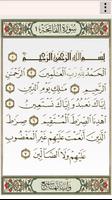 سُورَةُ الفَاتِحَةِ ١
بِسْمِ اللَّهِ الرَّحْمَٰنِ الرَّحِيمِ ١
الْحَمْدُ لِلَّهِ رَبِّ الْعَالَمِينَ ٢
الرَّحْمَٰنِ الرَّحِيمِ ٣ مَالِكِ يَوْمِ الدِّينِ ٤
إِيَّاكَ نَعْبُدُ وَإِيَّاكَ نَسْتَعِينُ ٥
اهْدِنَا الصِّرَاطَ الْمُسْتَقِيمَ ٦ صِرَاطَ
الَّذِينَ أَنْعَمْتَ عَلَيْهِمْ غَيْرِ الْمَغْضُوبِ
عَلَيْهِمْ وَلَا الضَّالِّينَ ٧